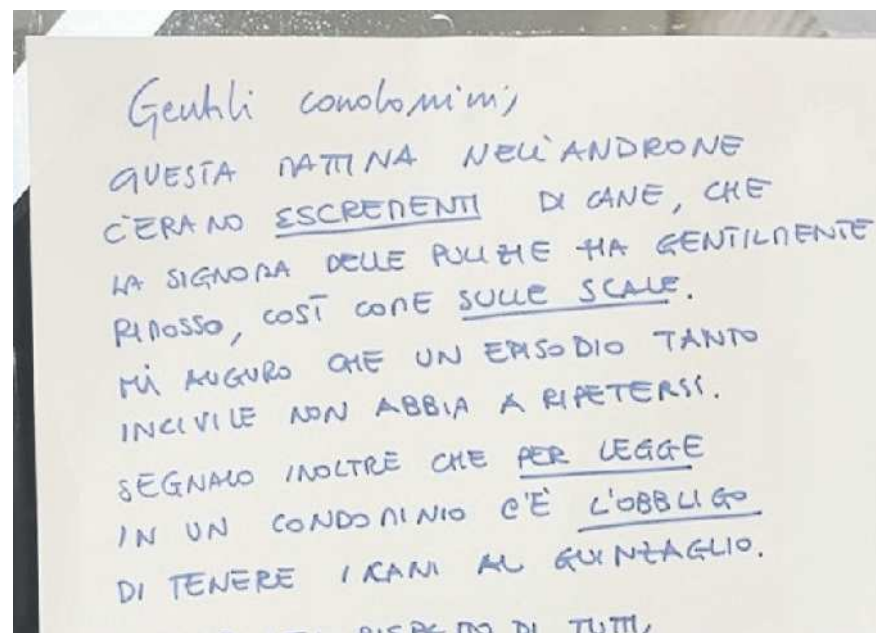 Gentili condomini,
QUESTA MATTINA NELL'ANDRONE
C'ERANO ESCREMENTI DI CANE, CHE
LA SIGNORA DELLE PULIZIE HA GENTILMENTE
RIMOSSO, COSÌ COME SULLE SCALE.
MI AUGURO CHE UN EPISODIO TANTO
INCIVILE NON ABBIA A RIPETERSI.
SEGNALO INOLTRE CHE PER LEGGE
IN UN CONDOMINIO C'È L'OBBLIGO
DI TENERE I CANI AL GUINZAGLIO.
RISPETTO DI TUTTI,